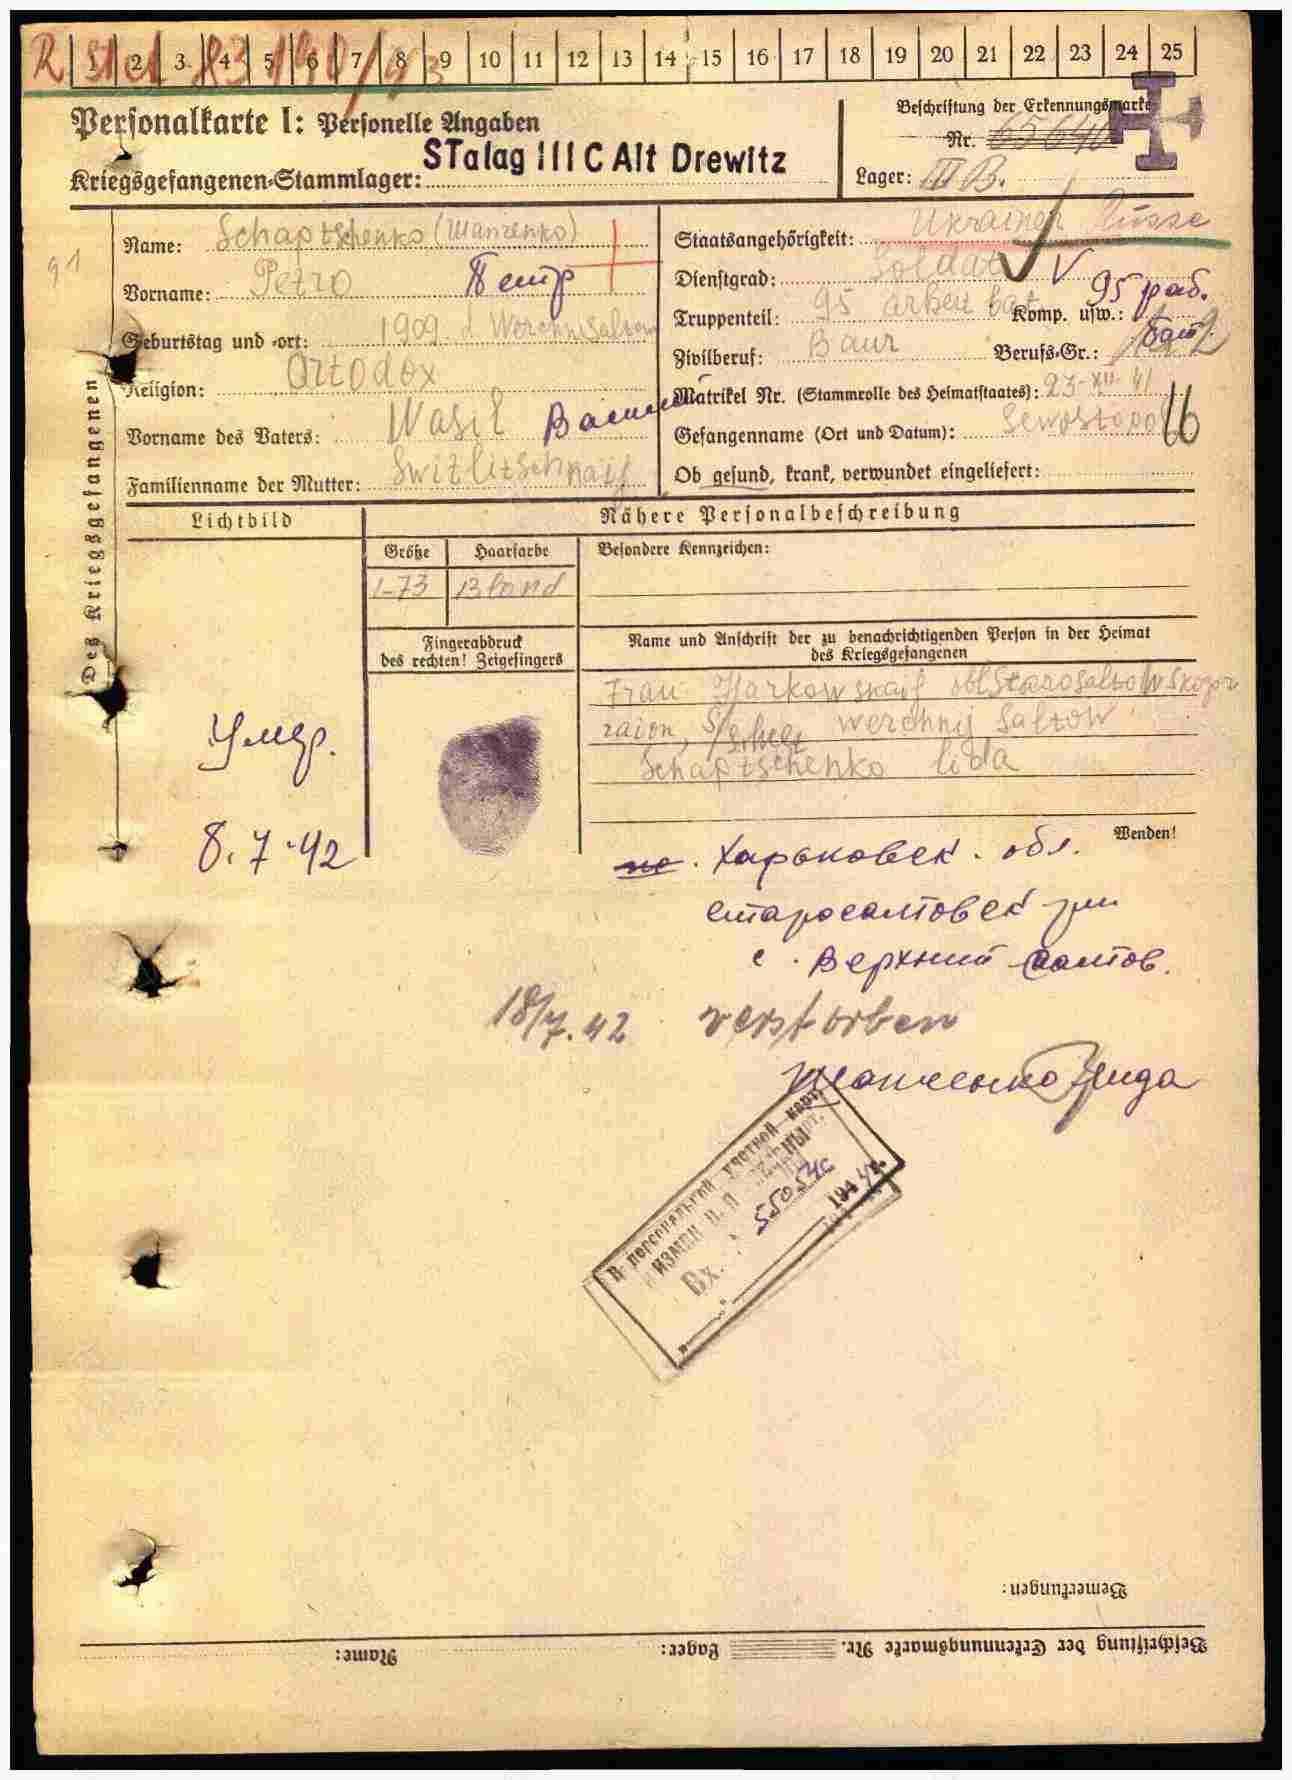 R 1 2 3 4 5 6 7 8 9 10 11 12 13 14 15 16 17 18 19 20 21 22 23 24 25
Personalkarte I: Personelle Angaben
Kriegsgefangenen-Stammlager: STalag III C Alt Drewitz
Beschriftung der Erkennungsmarke
Nr. 65640
Lager: III B.
Des Kriegsgefangenen
Name: Schaptschenko (Шапченко)
Vorname: Petro Петр
Geburtstag und -ort: 1909
Religion: Ortodox
Vorname des Vaters: Wasil
Familienname der Mutter:
Staatsangehörigkeit: Ukrainer Russe
Dienstgrad: Soldat
Truppenteil: 95 arbeit bat Komp. usw.: 95 раб. бат.
Zivilberuf: Baur Berufs-Gr.:
Matrikel Nr. (Stammrolle des Heimatstaates): 23-XII-41
Gefangenname (Ort und Datum): Sewostopol
16
Ob gesund, krank, verwundet eingeliefert:
Lichtbild
Nähere Personalbeschreibung
Größe
Haarfarbe
Besondere Kennzeichen:
1-73
Blond
Fingerabdruck
des rechten! Zeigefingers
Name und Anschrift der zu benachrichtigenden Person in der Heimat
des Kriegsgefangenen
Frau
raion, Werchnij Saltow
Schaptschenko Lida
Wenden!
Умер.
8.7.42
Харьковск. обл.
старосалтовск
с. Верхний Салтов.
18/7.42 verstorben
Шапченко Лида
В персональной учетной карт.
Вх. 55054с
194
Bemerkungen:
Beschriftung der Erkennungsmarke Nr. Lager: Name: